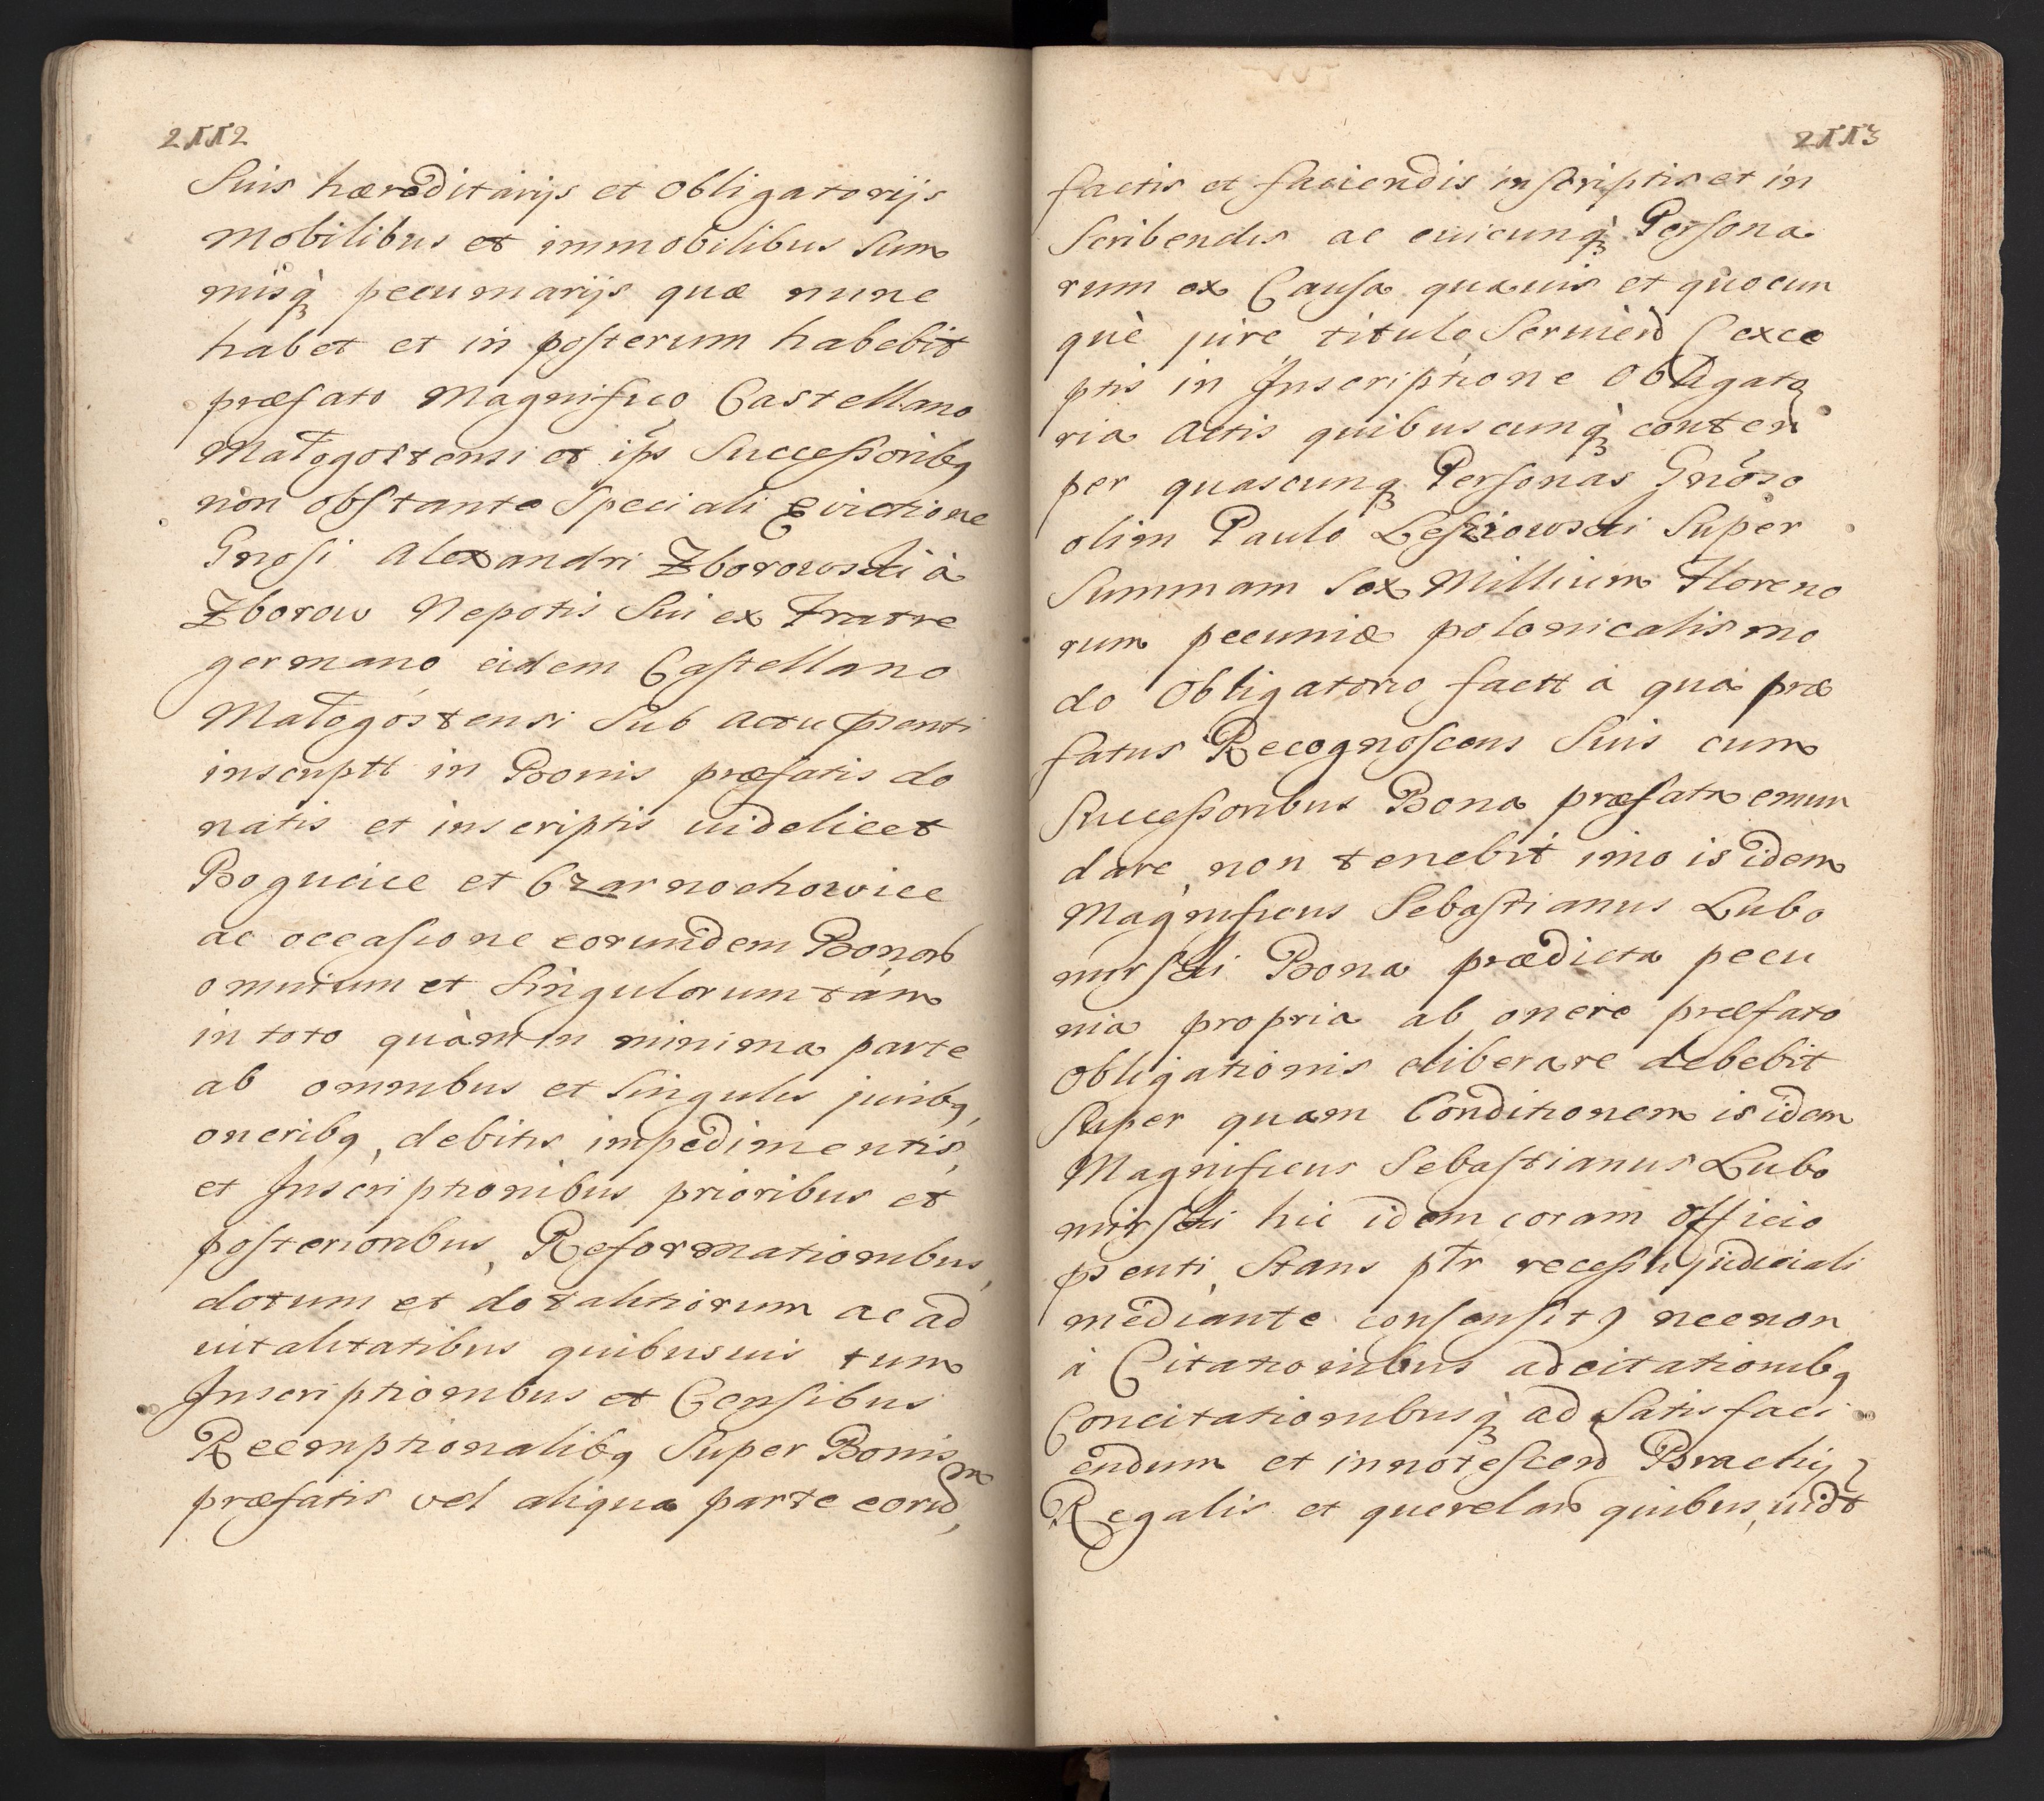 2112
Suis hæreditarijs et obligatorijs
mobilibus et immobilibus Sum
misq̀ pecuniarijs quæ nunc
habet et in posterum habebit
præfato Magnifico Castellano
Małogostensi et ips Successoribq
non obstante Speciali Evictione
Gnosi Alexandri Zborowski à
Zborow Nepotis Sui ex Fratre
germano eidem Castellano
Małogostensi Sub actu psenti
inscriptt in Bonis præfatis do
natis et inscriptis uidelicet
Bogucice et Czarnochowice
ac occasione eorundem Bonor
omnium et Singulorum tam
in toto quàm in minima parte
ab omnibus et Singulis juribq,
oneribq, debitis, impedimentis,
et Inscriptionibus prioribus et
posterioribus, Reformationibus,
dotum et dotalitiorum ac ad
uitalitatibus quibusuis tum
Inscriptionibus et Censibus
Reemptionalibq Super Bonis
præfatis vel aliqua parte eorūdm,
2113
factis et faciendis inscriptis et in
Scribendis ac cuicunq̀ Persona
rum ex Causa quauis et quocun
què jure titulo Seruien̄ (exce
ptis in Inscriptione Obligato
ria Actis quibuscunq̀ conten̄
per quascunq Personas Gnōso
olim Paulo Lesziowski Super
Summam Sex Millium Floreno
rum pecuniæ polonicalis mo
do Obligatorio factt à quà præ
fatus Recognoscens Suis cum
Successoribus Bona præfata emun
dare non tenebit imo is idem
Magnificus Sebastianus Lubo
mirski Bona prædicta pecu
nia propria ab onere præfato
Obligationis eliberare debebit
Super quam Conditionem is idem
Magnificus Sebastianus Lubo
mirski hic idem coram Officio
psenti Stans ptr recessu judiciali
mediante consensit) necnon
à Citationibus adcitationibq
Concitationibusq̀ ad Satisfaci
endum et innotescen̄ Brachij
Regalis et querelar quibus, uidt